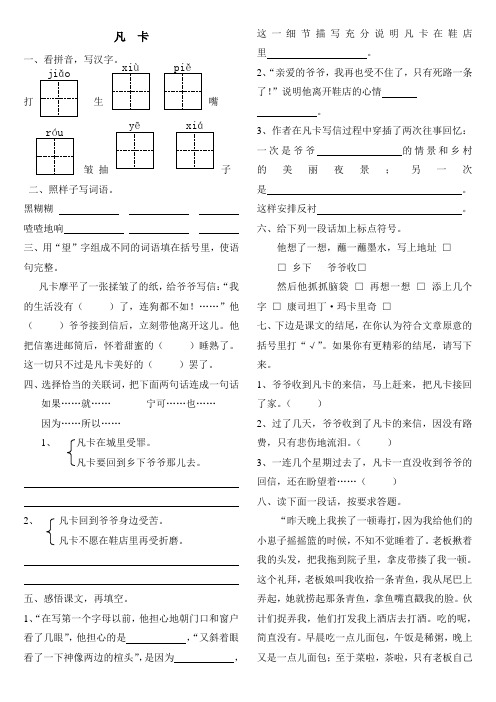 凡 卡
一、看拼音，写汉字。
jiǎo xiù piě
打 生 嘴
róu yě xiá
皱 抽 子
二、照样子写词语。
黑糊糊
喳喳地响
三、用“望”字组成不同的词语填在括号里，使语
句完整。
凡卡摩平了一张揉皱了的纸，给爷爷写信：“我
的生活没有（ ）了，连狗都不如！……”他
（ ）爷爷接到信后，立刻带他离开这儿。他
把信塞进邮筒后，怀着甜蜜的（ ）睡熟了。
这一切只不过是凡卡美好的（ ）罢了。
四、选择恰当的关联词，把下面两句话连成一句话
如果……就…… 宁可……也……
因为……所以……
1、 凡卡在城里受罪。
凡卡要回到乡下爷爷那儿去。
2、 凡卡回到爷爷身边受苦。
凡卡不愿在鞋店里再受折磨。
五、感悟课文，再填空。
1、“在写第一个字母以前，他担心地朝门口和窗户
看了几眼”，他担心的是 ，“又斜着眼
看了一下神像两边的楦头”，是因为 ，
这一细节描写充分说明凡卡在鞋店
里 。
2、“亲爱的爷爷，我再也受不住了，只有死路一条
了！”说明他离开鞋店的心情
。
3、作者在凡卡写信过程中穿插了两次往事回忆：
一次是爷爷 的情景和乡村
的美丽夜景；另一次
是 。
这样安排反衬 。
六、给下列一段话加上标点符号。
他想了一想，蘸一蘸墨水，写上地址 □
□ 乡下 爷爷收□
然后他抓抓脑袋 □ 再想一想 □ 添上几个
字 □ 康司坦丁·玛卡里奇 □
七、下边是课文的结尾，在你认为符合文章原意的
括号里打“√”。如果你有更精彩的结尾，请写下
来。
1、爷爷收到凡卡的来信，马上赶来，把凡卡接回
了家。（ ）
2、过了几天，爷爷收到了凡卡的来信，因没有路
费，只有悲伤地流泪。（ ）
3、一连几个星期过去了，凡卡一直没收到爷爷的
回信，还在盼望着……（ ）
八、读下面一段话，按要求答题。
“昨天晚上我挨了一顿毒打，因为我给他们的
小崽子摇摇篮的时候，不知不觉睡着了。老板揪着
我的头发，把我拖到院子里，拿皮带揍了我一顿。
这个礼拜，老板娘叫我收拾一条青鱼，我从尾巴上
弄起，她就捞起那条青鱼，拿鱼嘴直戳我的脸。伙
计们捉弄我，他们打发我上酒店去打酒。吃的呢，
简直没有。早晨吃一点儿面包，午饭是稀粥，晚上
又是一点儿面包；至于菜啦，茶啦，只有老板自己